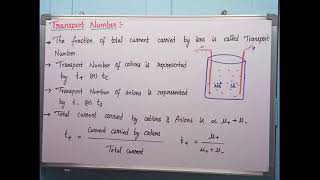 Transport Number :-
→ The fraction of total current carried by ions is called Transport
Number
→ Transport Number of cations is represented
by t+ (or) tc
→ Transport Number of anions is represented
by t- (or) ta
→ Total current carried by cations & Anions is ∝ μ+ + μ-
t+ = Current carried by cations / Total current
t+ = μ+ / μ+ + μ-
Na+ Cl-